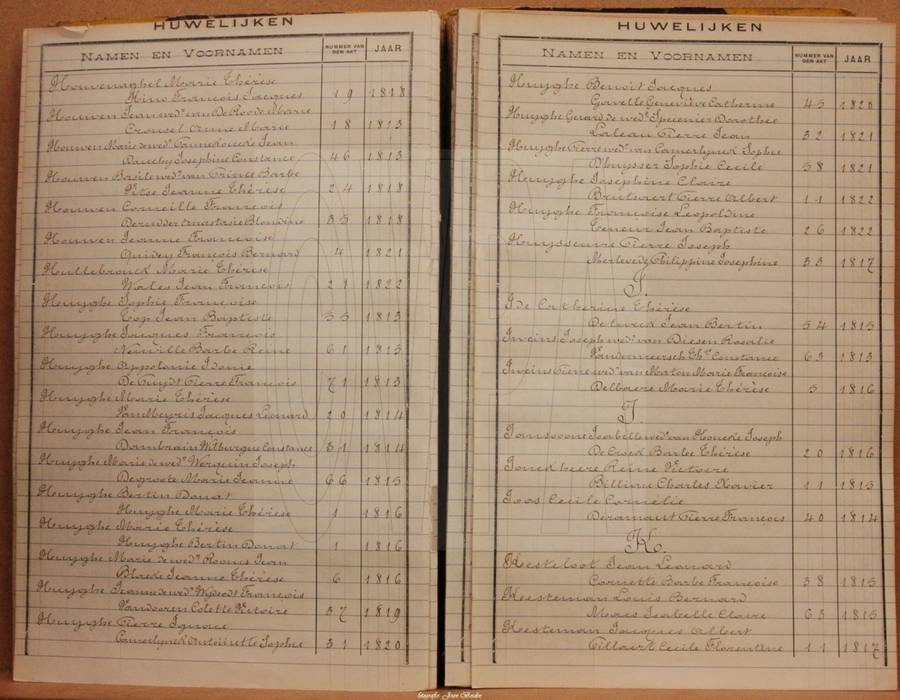 HUWELIJKEN
NAMEN EN VOORNAMEN NUMMER VAN DEN AKT JAAR
Houvenaghel Marie Thérèse
Hino François Jacques 19 1818
Houwen Jean wedr van De Roo de Marie
Crousel Anne Marie 18 1813
Houwen Marie de wede Jean
Dauchy Josephine Constance 46 1813
Houwen Basile wedr van Barbe
Pitse Jeanne Thérèse 24 1818
Houwen Corneille François
Derudder Anastasie Blondine 35 1818
Houwen Jeanne Françoise
Quidey François Bernard 4 1821
Hullebrouck Marie Thérèse
Wales Jean François 21 1822
Huyghe Sophie Françoise
Top Jean Baptiste 55 1813
Huyghe Jacques François
Neuville Barbe Reine 61 1813
Huyghe Appolonie Idonie
De Cuydt Pierre François 71 1813
Huyghe Marie Thérèse
Jacques Léonard 20 1814
Huyghe Jean François
Dambrain Wilburgue Constance 31 1814
Huyghe Marie de wede Werquin Joseph
Degroote Marie Jeanne 66 1815
Huyghe Bertin Donat
Huyghe Marie Thérèse 1 1816
Huyghe Marie Thérèse
Huyghe Bertin Donat 1 1816
Huyghe Marie de wede Romus Jean
Blaeke Jeanne Thérèse 6 1816
Huyghe Jeanne de wede François
Vandooren Colette Victoire 37 1819
Huyghe Pierre Ignace
Camerlynck Antoinette Sophie 31 1820
HUWELIJKEN
NAMEN EN VOORNAMEN NUMMER VAN DEN AKT JAAR
Huyghe Benoit Jacques
Gavelle Geneviève Catherine 45 1820
Huyghe Gerard de wedr Specenier Dorothée
Laleau Pierre Jean 32 1821
Huyghe Pierre wedr van Camerlynck Sophie
D'huysser Sophie Cecile 58 1821
Huyghe Josephine Claire
Brutsaert Pierre Albert 11 1822
Huyghe Françoise Leopoldine
Teneur Jean Baptiste 26 1822
Huysseune Pierre Joseph
Mertevede Philippine Josephine 33 1817
I.
Ide Catherine Thérèse
Deturck Jean Bertin 54 1815
Inveins Joseph wedr van Diesen Rosalie
Vandermeersch Thse Constance 63 1813
Inveins Pierre wedr van Marton Marie Françoise
Delbaere Marie Thérèse 5 1816
J.
Janssoone Isabelle wede van Joseph
De Crock Barbe Thérèse 20 1816
Jonckheere Reine Victoire
Billiau Charles Xavier 11 1815
Joos Cecile Cornélie
Deramaut Pierre François 40 1814
K.
Kesteloot Jean Leonard
Cornette Barbe Françoise 38 1815
Keesteman Louis Bernard
Maes Isabelle Claire 63 1815
Keesteman Jacques Albert
Tillaert Cecile Florentine 11 1817